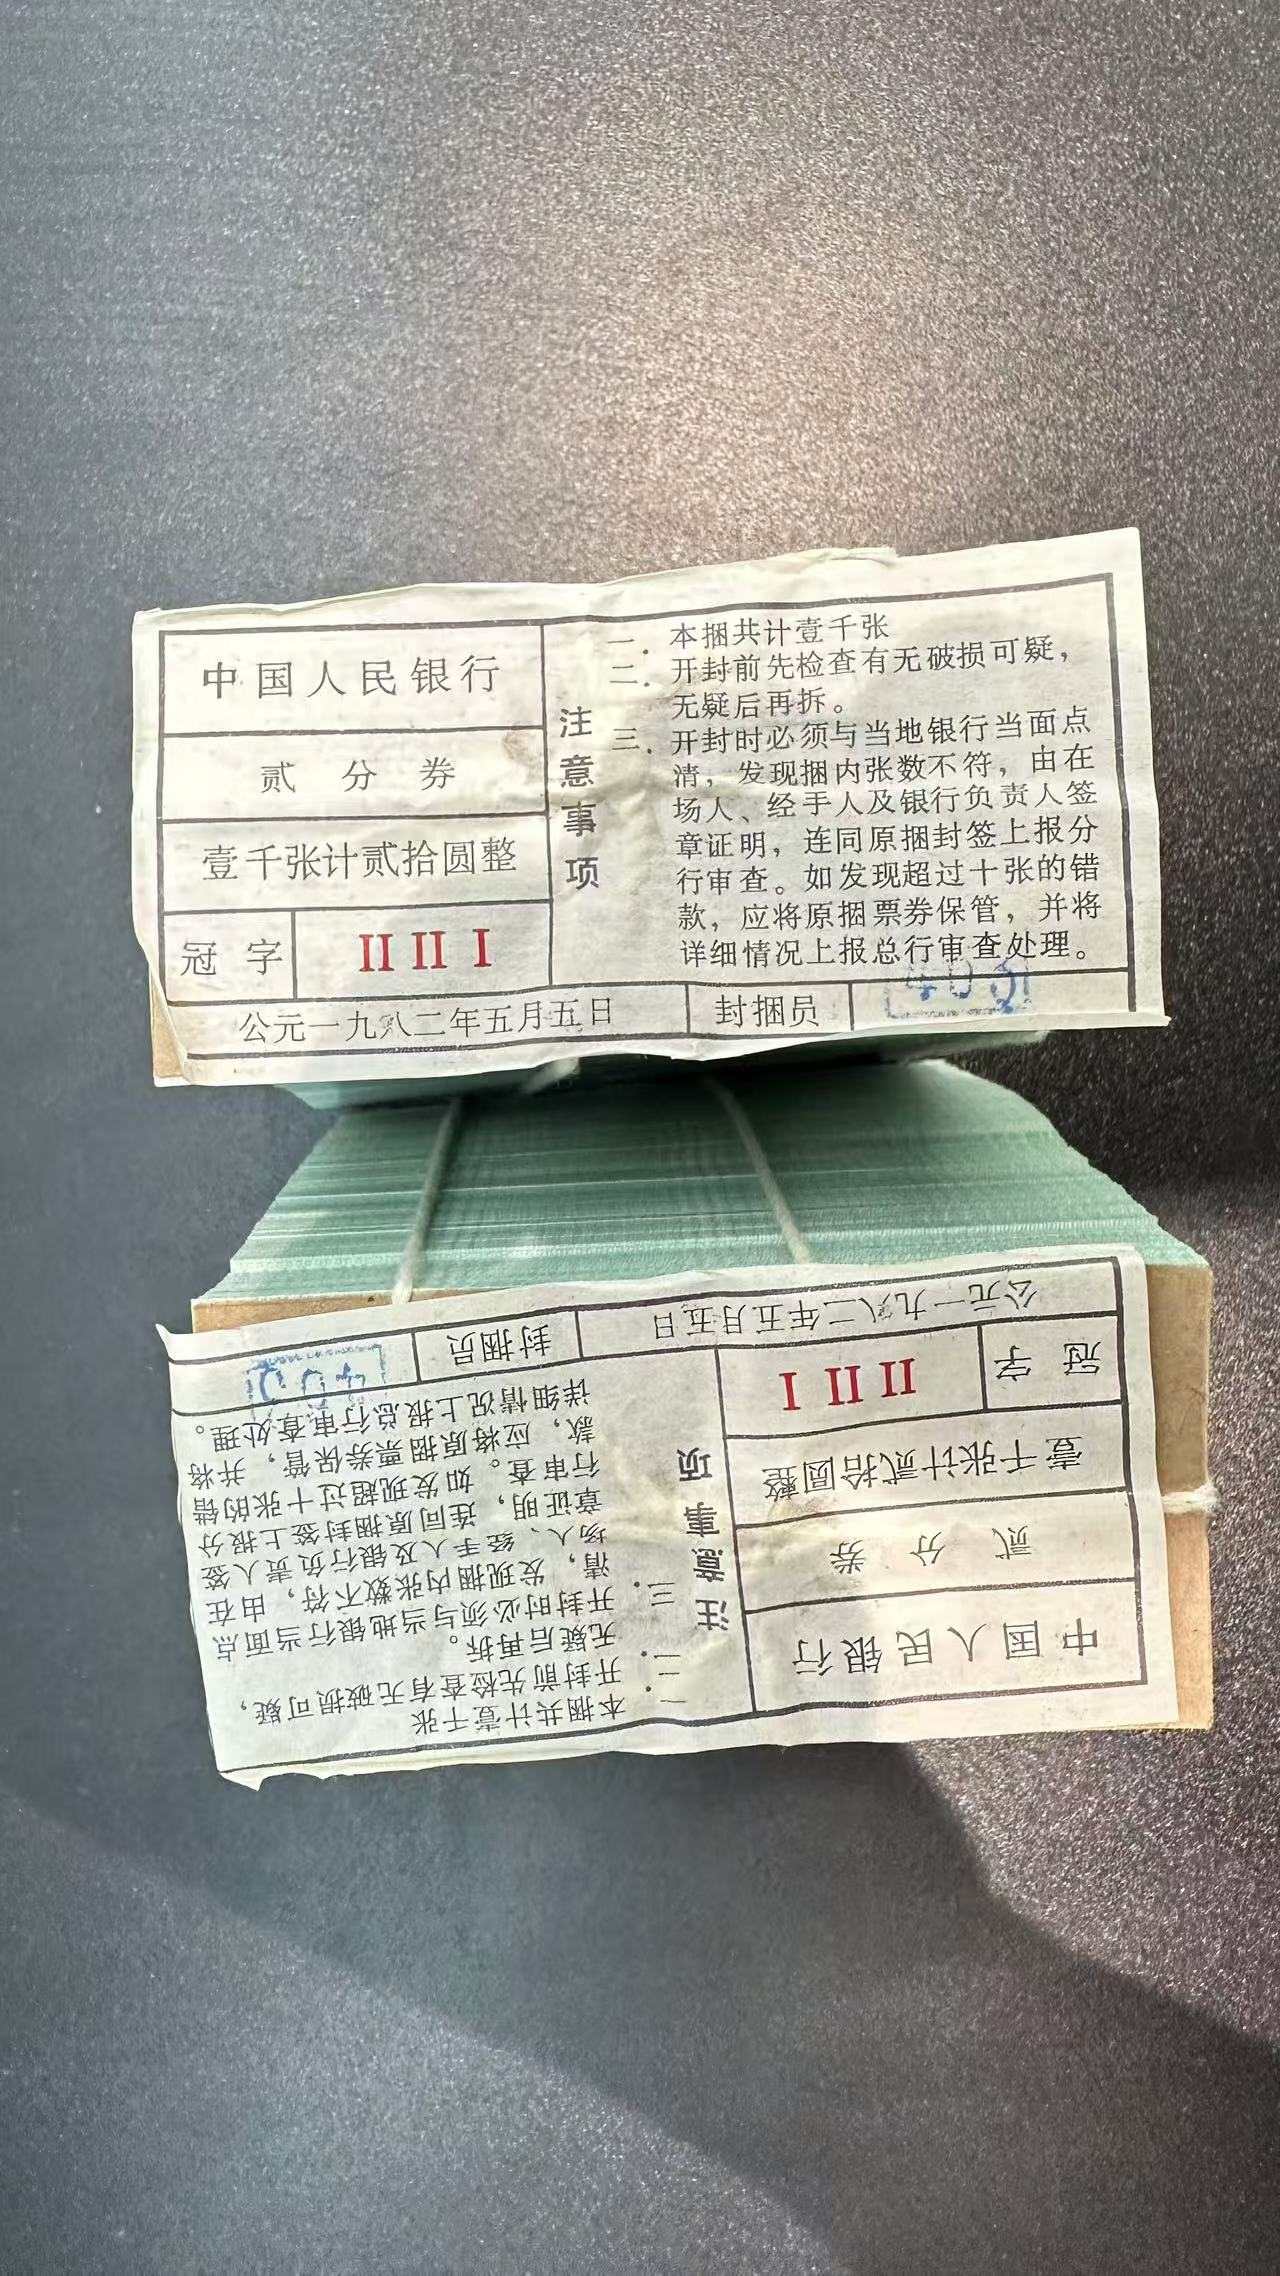 中国人民银行
贰分券
壹千张计贰拾圆整
冠字 II II I
注意事项
一．本捆共计壹千张
二．开封前先检查有无破损可疑，
无疑后再拆。
三．开封时必须与当地银行当面点
清，发现捆内张数不符，由在
场人、经手人及银行负责人签
章证明，连同原捆封签上报分
行审查。如发现超过十张的错
款，应将原捆票券保管，并将
详细情况上报总行审查处理。
公元一九八二年五月五日 封捆员
中国人民银行
贰分券
壹千张计贰拾圆整
冠字 II II I
注意事项
一．本捆共计壹千张
二．开封前先检查有无破损可疑，
无疑后再拆。
三．开封时必须与当地银行当面点
清，发现捆内张数不符，由在
场人、经手人及银行负责人签
章证明，连同原捆封签上报分
行审查。如发现超过十张的错
款，应将原捆票券保管，并将
详细情况上报总行审查处理。
公元一九八二年五月五日 封捆员